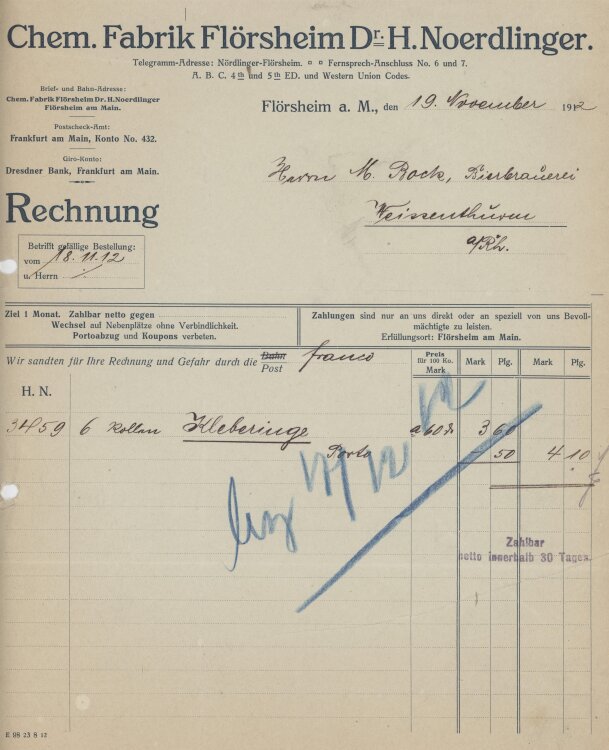 Chem. Fabrik Flörsheim Dr. H. Noerdlinger.
Telegramm-Adresse: Nördlinger-Flörsheim. ¤ ¤ Fernsprech-Anschluss No. 6 und 7.
A. B. C. 4th und 5th ED. und Western Union Codes.
Brief- und Bahn-Adresse:
Chem. Fabrik Flörsheim Dr. H. Noerdlinger
Flörsheim am Main.
Postscheck-Amt:
Frankfurt am Main, Konto No. 432.
Giro-Konto:
Dresdner Bank, Frankfurt am Main.
Flörsheim a. M., den 19. November 1912
Herrn M. Bock, Bierbrauerei
Weissenthurm
a/Rh.
Rechnung
Betrifft gefällige Bestellung:
vom 18.11.12
u. Herrn
Ziel 1 Monat. Zahlbar netto gegen
Wechsel auf Nebenplätze ohne Verbindlichkeit.
Portoabzug und Koupons verbeten.
Zahlungen sind nur an uns direkt oder an speziell von uns Bevoll-
mächtigte zu leisten.
Erfüllungsort: Flörsheim am Main.
Wir sandten für Ihre Rechnung und Gefahr durch die Bahn Post franco
Preis für 100 Ko. Mark
Mark Pfg. Mark Pfg.
H. N.
3459 6 Rollen Kleberinge a 60 3 60
Porto 50 4 10
17/12 12
Zahlbar
netto innerhalb 30 Tages.
E 98 23 8 12